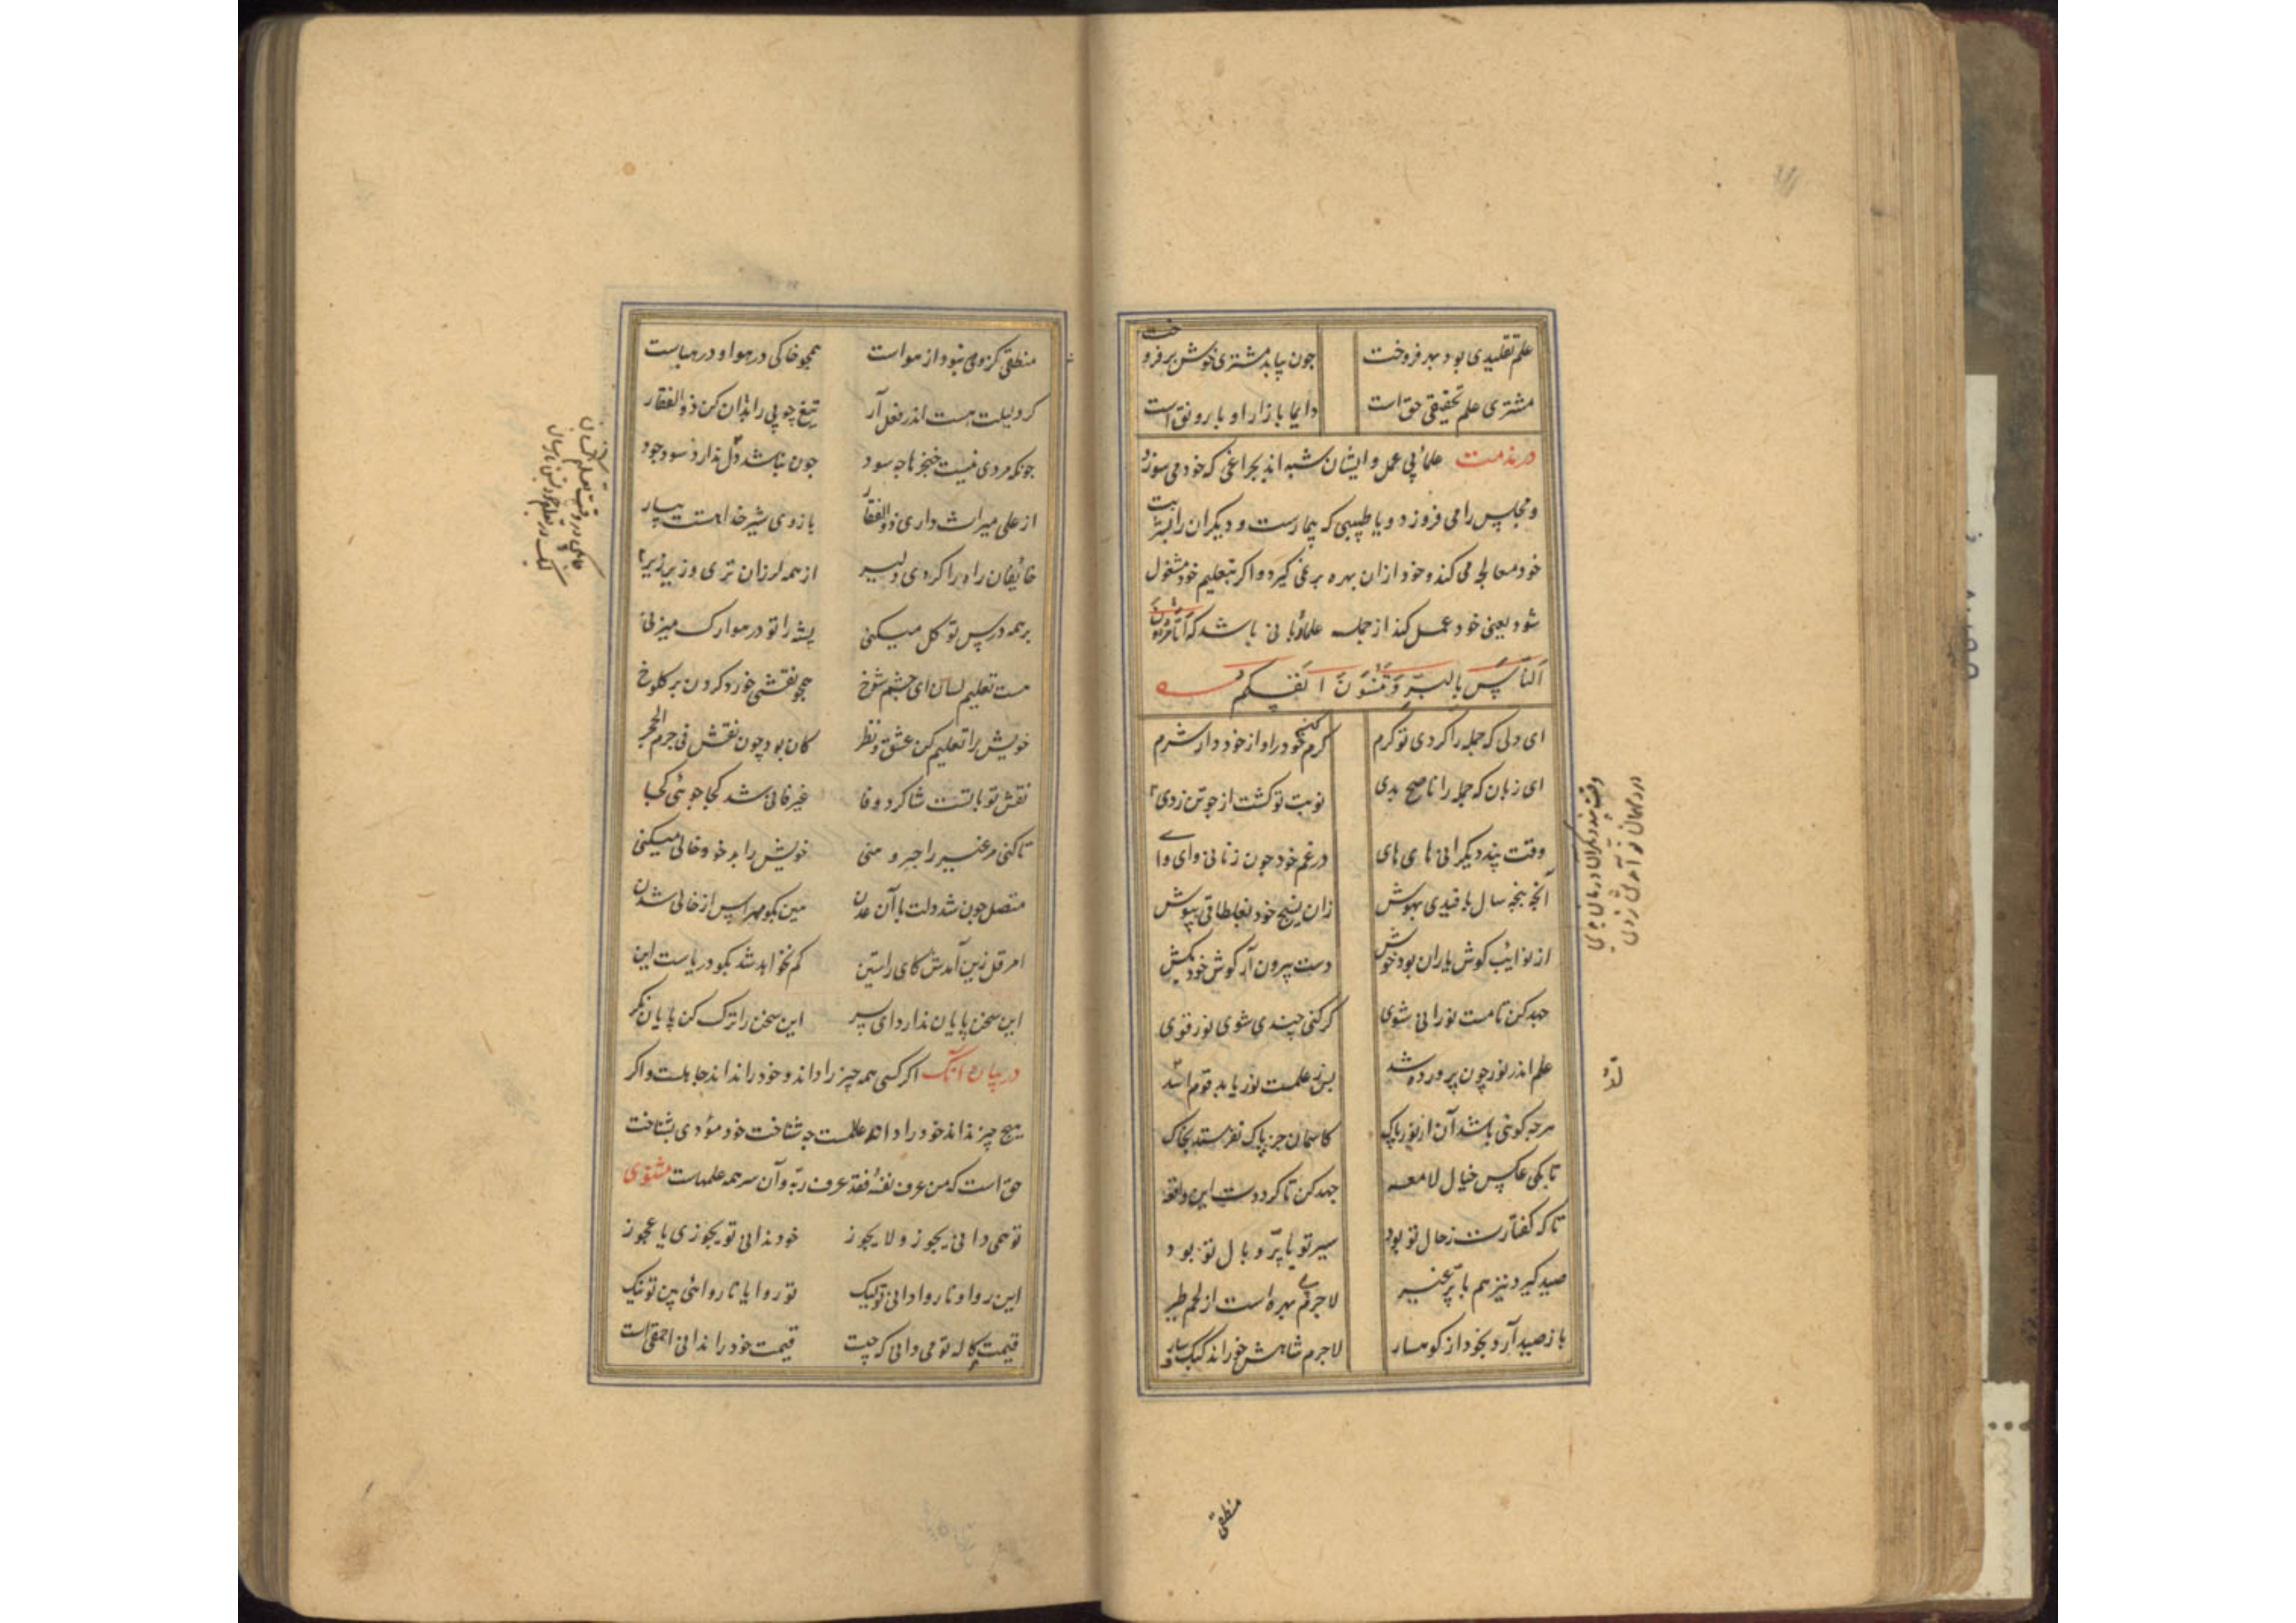 علم تقلیدی بود بهر فروخت جون بیابد مشتری خوش برفروخت
مشتری علم تحقیقی حق است دایما بازار او با رونق است
در مذمت علمائی بی عمل و ایشان شبه اند بجراغی که خود می سوزد
و مجلس را می فروزد و یا طبیبی که بیمارست و دیکران را بشربت
خود معالجه می کند و خود ازان بهره بر نمی کیرد و اکر بتعلیم خود مشغول
شود یعنی خود عمل کند از جمله علماء ربانی باشد که اَتَأمُرُونَ
اَلنَّاسَ بِالبِرِّ وَتَنسَونَ اَنفُسَکُم
ای دلی که جمله را کردی تو کرم کرم کن خود را و از خود دار شرم
ای زبان که جمله را ناصح بدی نوبت تو کشت از جه تن زدی
وقت پند دیکرانی های های در غم خود جون زنانی وای وای
آنچه پنجه سال بافیدی بهوش زان نسیج خود بغلطاقی بپوش
از نوایت کوش یاران بود خوش دست بیرون آر کوش خود بکش
جهد کن تا مست نورانی شوی کر کنی جندی شوی نور قوی
علم اندر نور چون پرورده شد پس ز علمت نور یابد قوم لد
هرجه کوئی باشد آن از نور پاک کاسمان جز پاک نفرستد بخاک
تا بکی عکس خیال لامعه جهد کن تا کرددت این واقعه
تا که کفتارت ز حال تو بود سیر تو با پر و بال تو بود
صید کیرد نیز هم با پر غیر لاجرم بی بهره است از لحم طیر
باز صید آرد بخود از کوهسار لاجرم شاهش خوراند کبک و سار
لد
منطقی
منطقی کز وحی نبود از هواست همجو خاکی در هوا و در هباست
کر دلیلت هست اندر فعل آر تیغ چوبی را بدان کن ذوالفقار
جونکه مردی نیست خنجرها جه سود جون نباشد دل ندارد سود خود
از علی میراث داری ذوالفقار بازوی شیر خدا هستت بیار
خائفان راه را کردی دلیر از همه لرزان تری و زیر زیر
بر همه درس توکل میکنی پشه را تو در هوا رک میزنی
هست تعلیم لسان ای چشم شوخ همچو نقشی خورد کردن بر کلوخ
خویش را تعلیم کن عشق و نظر کان بود چون نقش فی جرم الحجر
نقش تو با تست شاکرد وفا غیر فانی شد کجا جوئی کجا
تا کنی مر غیر را حبر و سنی خویش را بد خو و خالی میکنی
متصل جون شد دلت با آن عدن هین بکو مهراس از خالی شدن
امر قل زین آمدش کای راستین کم نخواهد شد بکو دریاست این
این سخن پایان ندارد ای پسر این سخن را ترک کن پایان نکر
در بیان آنک اکر کسی همه چیز را داند و خود را نداند جاهلست و اکر
هیچ چیز نداند خود را داند عالمست جه شناخت خود مؤدی بشناخت
حق است که من عرف نفسه فقد عرف ربه و آن سر همه علمهاست مثنوی
تو همی دانی یجوز و لا یجوز خود ندانی تو یجوزی یا عجوز
این روا و ناروا دانی تو لیک تو روا یا ناروائی بین تو نیک
قیمت هر کاله تو می دانی که چیست قیمت خود را ندانی احمقی است